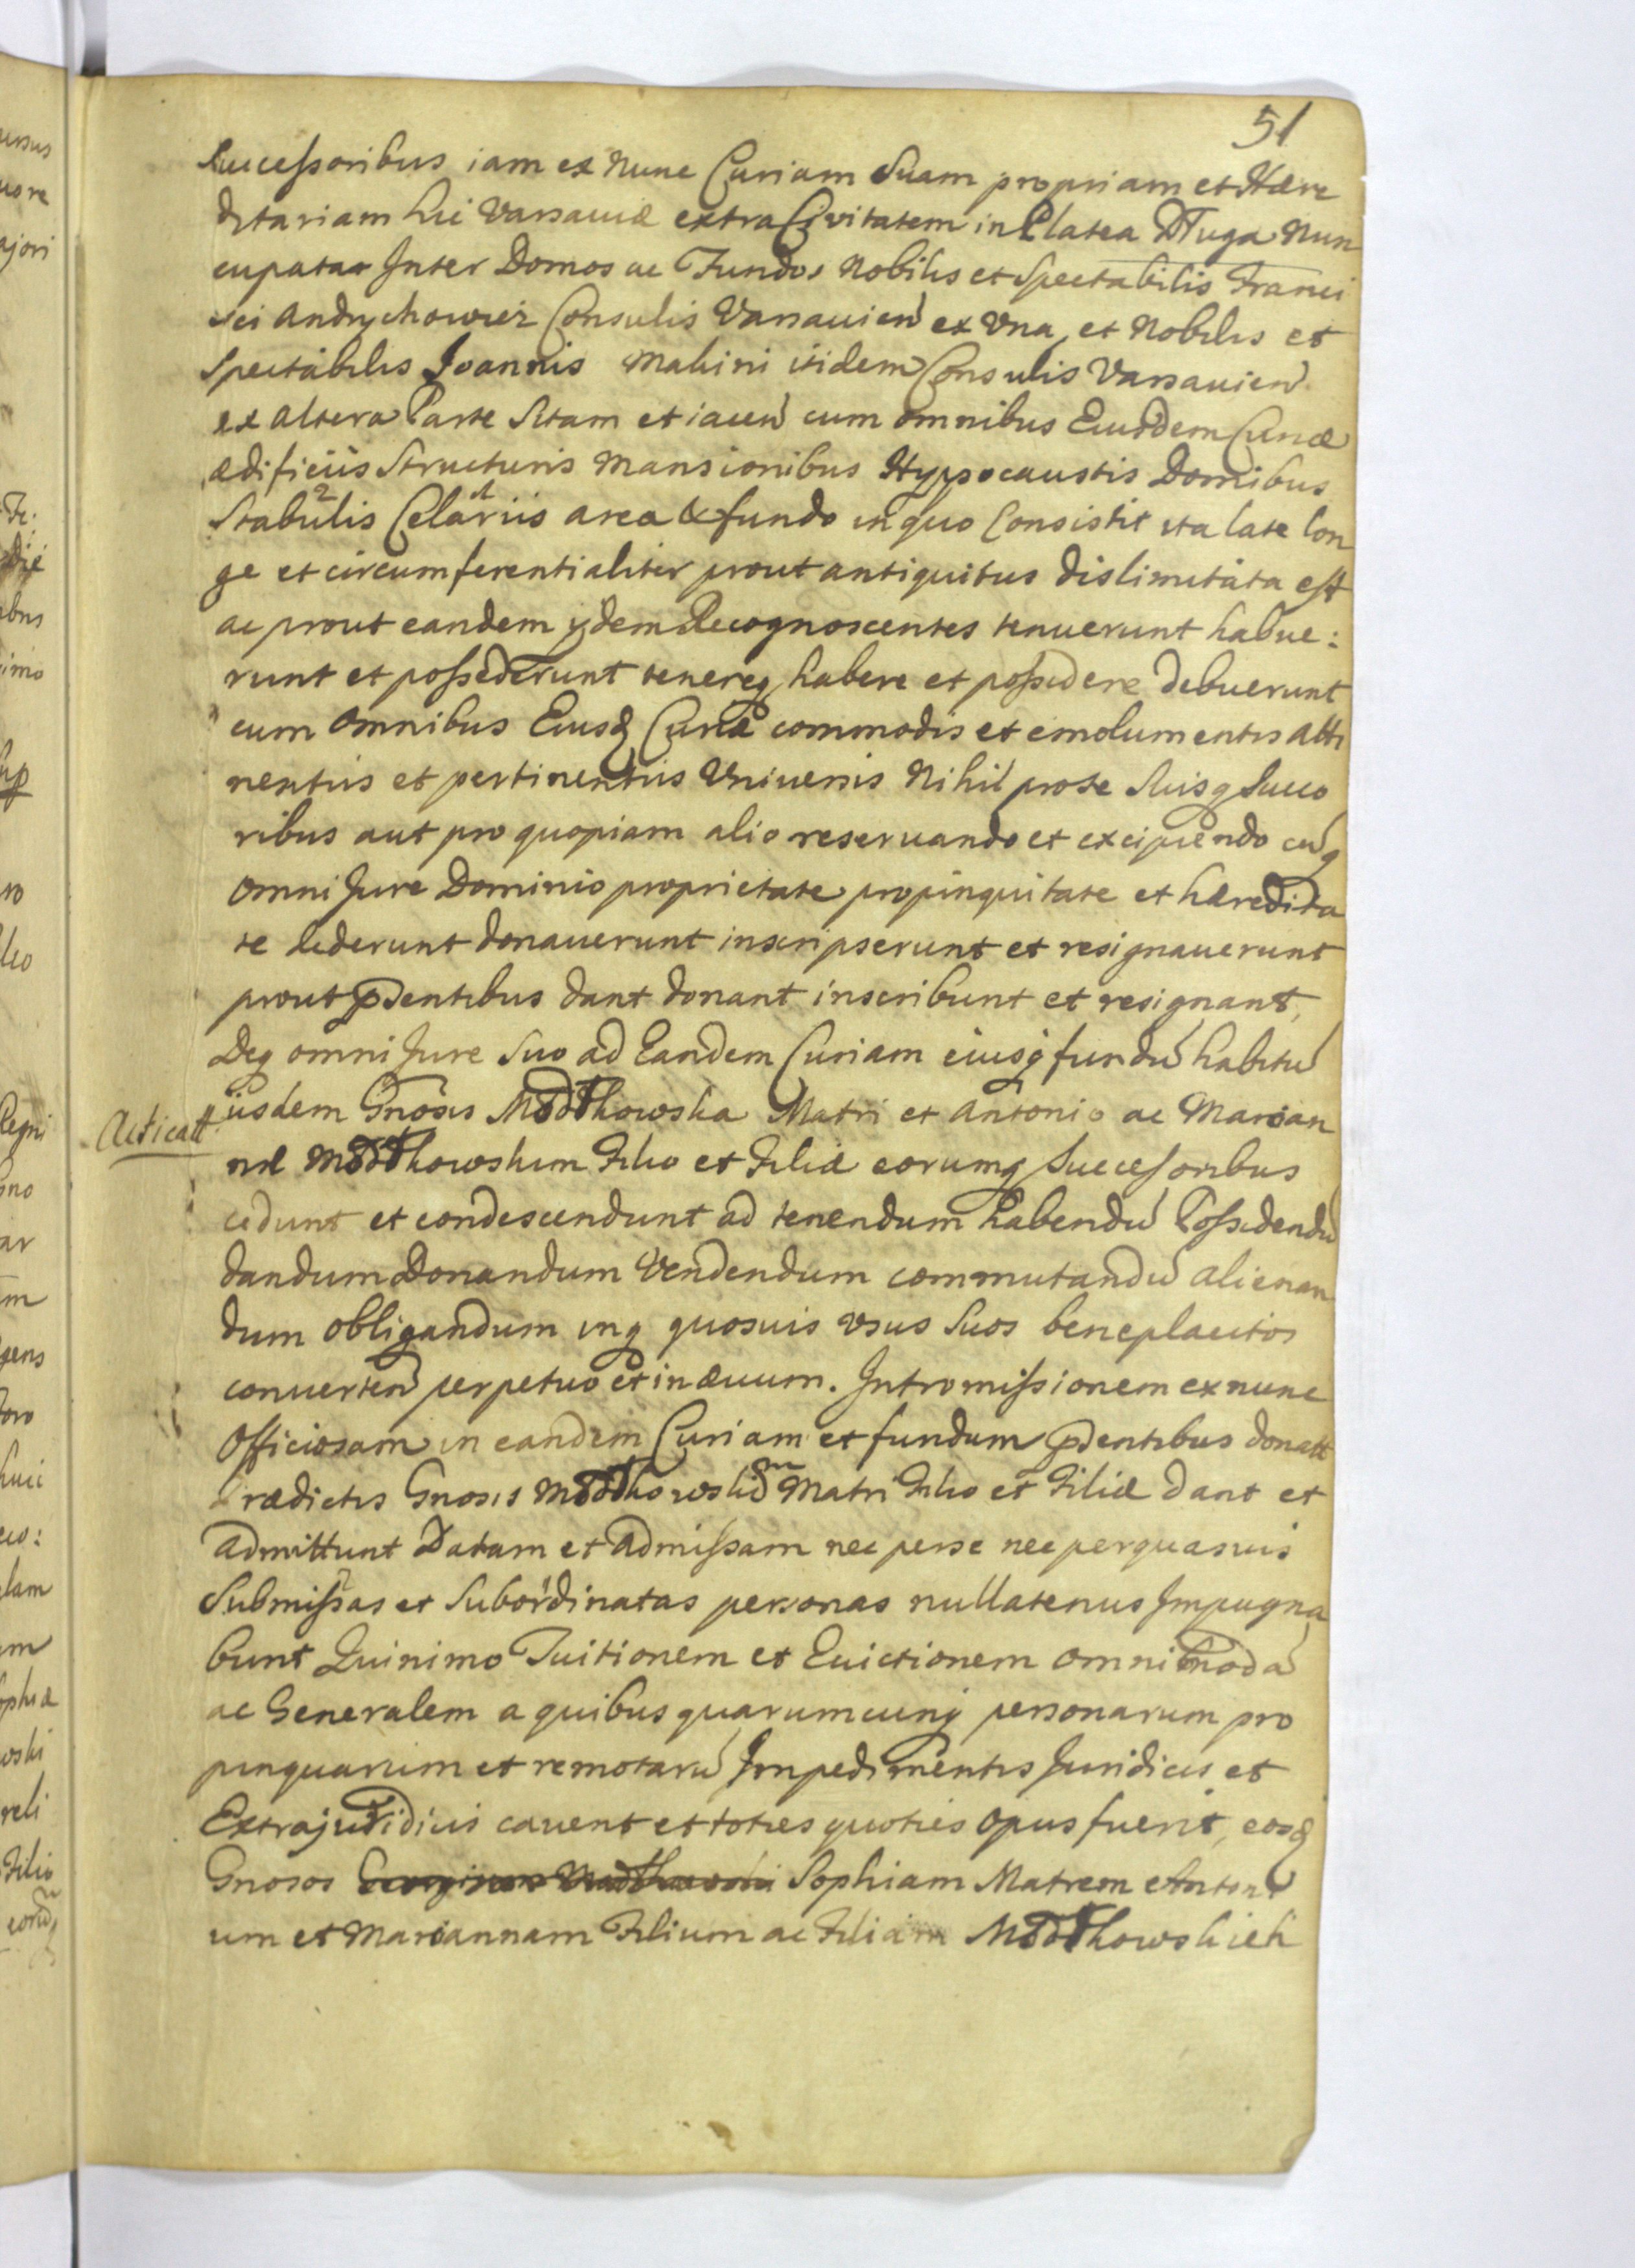 51
Successoribus iam ex nunc Curiam Suam propriam et Hære
ditariam hic Varsauiæ extra Civitatem in Platea Długa Nun
cupata Inter Domos ac Fundos Nobilis et Spectabilis Franci
sci Andrychowicz Consulis Varsauien ex Vna, et Nobilis et
Spectabilis Joannis Malini itidem Consulis Varsauien
ex altera Parte Sitam et iacen cum omnibus Eiusdem Curiæ
ædificiis Structuris Mansionibus Hyppocaustis Domibus
Stabulis Celariis area & fundo in quo Consistit ita late lon
ge et circumferentialiter prout antiquitus dislimitata est
ac prout eandem ydem Recognoscentes tenuerunt habue:
runt et possederunt tenereq habere et possidere debuerunt
cum omnibus Eiusd Curiæ commodis et emolumentis atti
nentiis et pertinentiis Vniuersis Nihil pro se Suisq Succo
ribus aut pro quopiam alio reseruando et excipiendo cuq
omni Jure Dominio proprietate propinquitate et hæredita
te dederunt donauerunt inscripserunt et resignauerunt
prout pntibus dant donant inscribunt et resignant,
Deq omni Jure Suo ad Eandem Curiam eiusq fundu habitu
Acticatt. iisdem Gnosis Modłkowska Matri et Antonio ac Marian
næ Modłkowskim Filio et Filiæ eorumq Successoribus
cedunt et condescendunt ad tenendum habendu Possidendu
dandum Donandum Vendendum commutandu alienan
dum obligandum inq quosuis vsus Suos beneplacitos
conuerten perpetuo et in æuum. Intromissionem ex nunc
Officiosam in eandem Curiam et fundum pntibus donatt
Prædictis Gnosis Matri Filio et Filiæ dant et
admittunt Datam et admissam nec per se nec per quasuis
Submissas et Subordinatas personas nullatenus Impugna
bunt Quinimo Tuitionem et Euictionem omnimoda
ac Generalem a quibus quarumcunq personarum pro
pinquarum et remotaru Impedimentis Juridicis et
Extrajuridicis cauent et toties quoties opus fuerit, eosd
Gnosos Sophiam Matrem Antoni
um et Mariannam Filium ac Filiam Modłkowskich